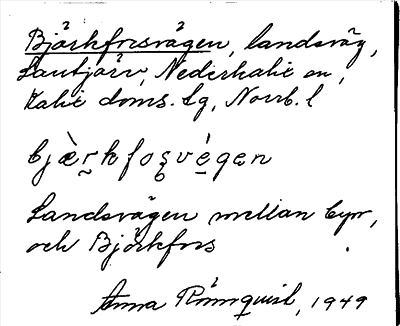 Björkforsvägen, landsväg,
Lantjärv, Nederkalix sn,
Kalix doms. lg, Norrb. l
bjæ̀r̯kfoșvé̱gen
Landsvägen mellan byn,
och Björkfors
Anna Rönnquist, 1949